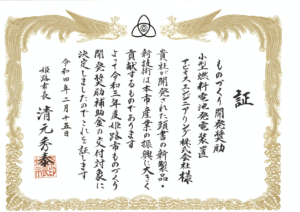 証
ものづくり開発奨励
小型燃料電池発電装置
アビオスエンジニアリング株式会社 様
貴社が開発された頭書の新製品・
新技術は本市産業の振興に大きく
貢献するものであります
よって令和三年度姫路市ものづくり
開発奨励補助金の交付対象に
決定しましたのでこれを証します
令和四年二月十五日
姫路市長 清元秀泰